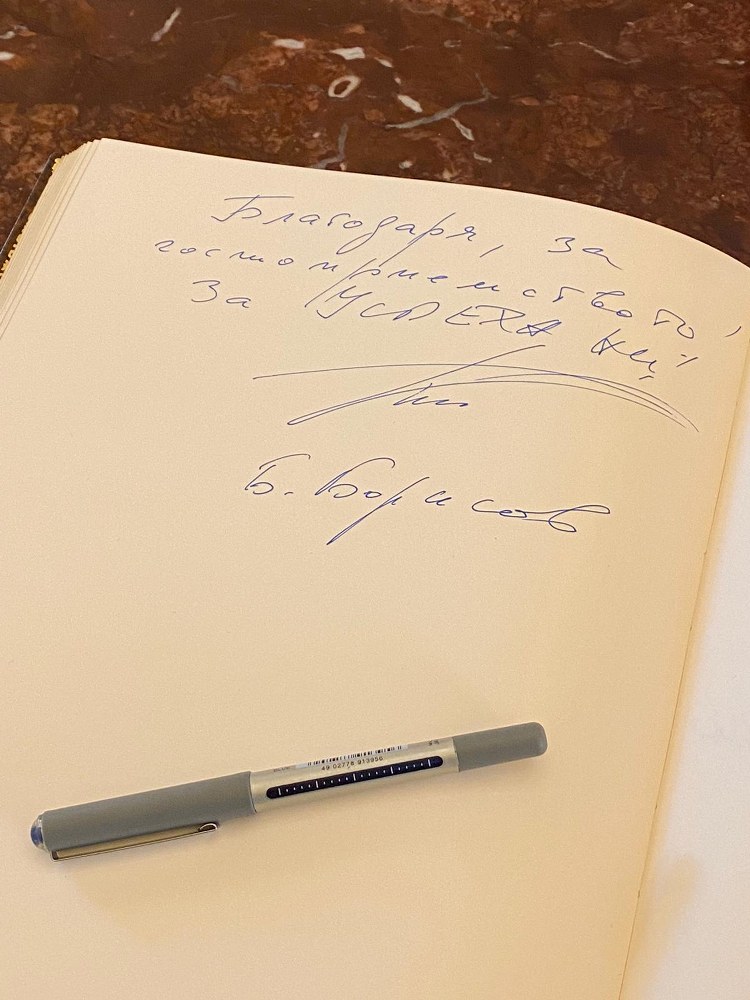 Благодаря, за
гостоприемството,
За УСПЕХА НИ!
Б. Борисов
49 02778 913956